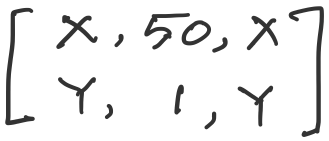 [X, 50, X
Y, 1, Y]